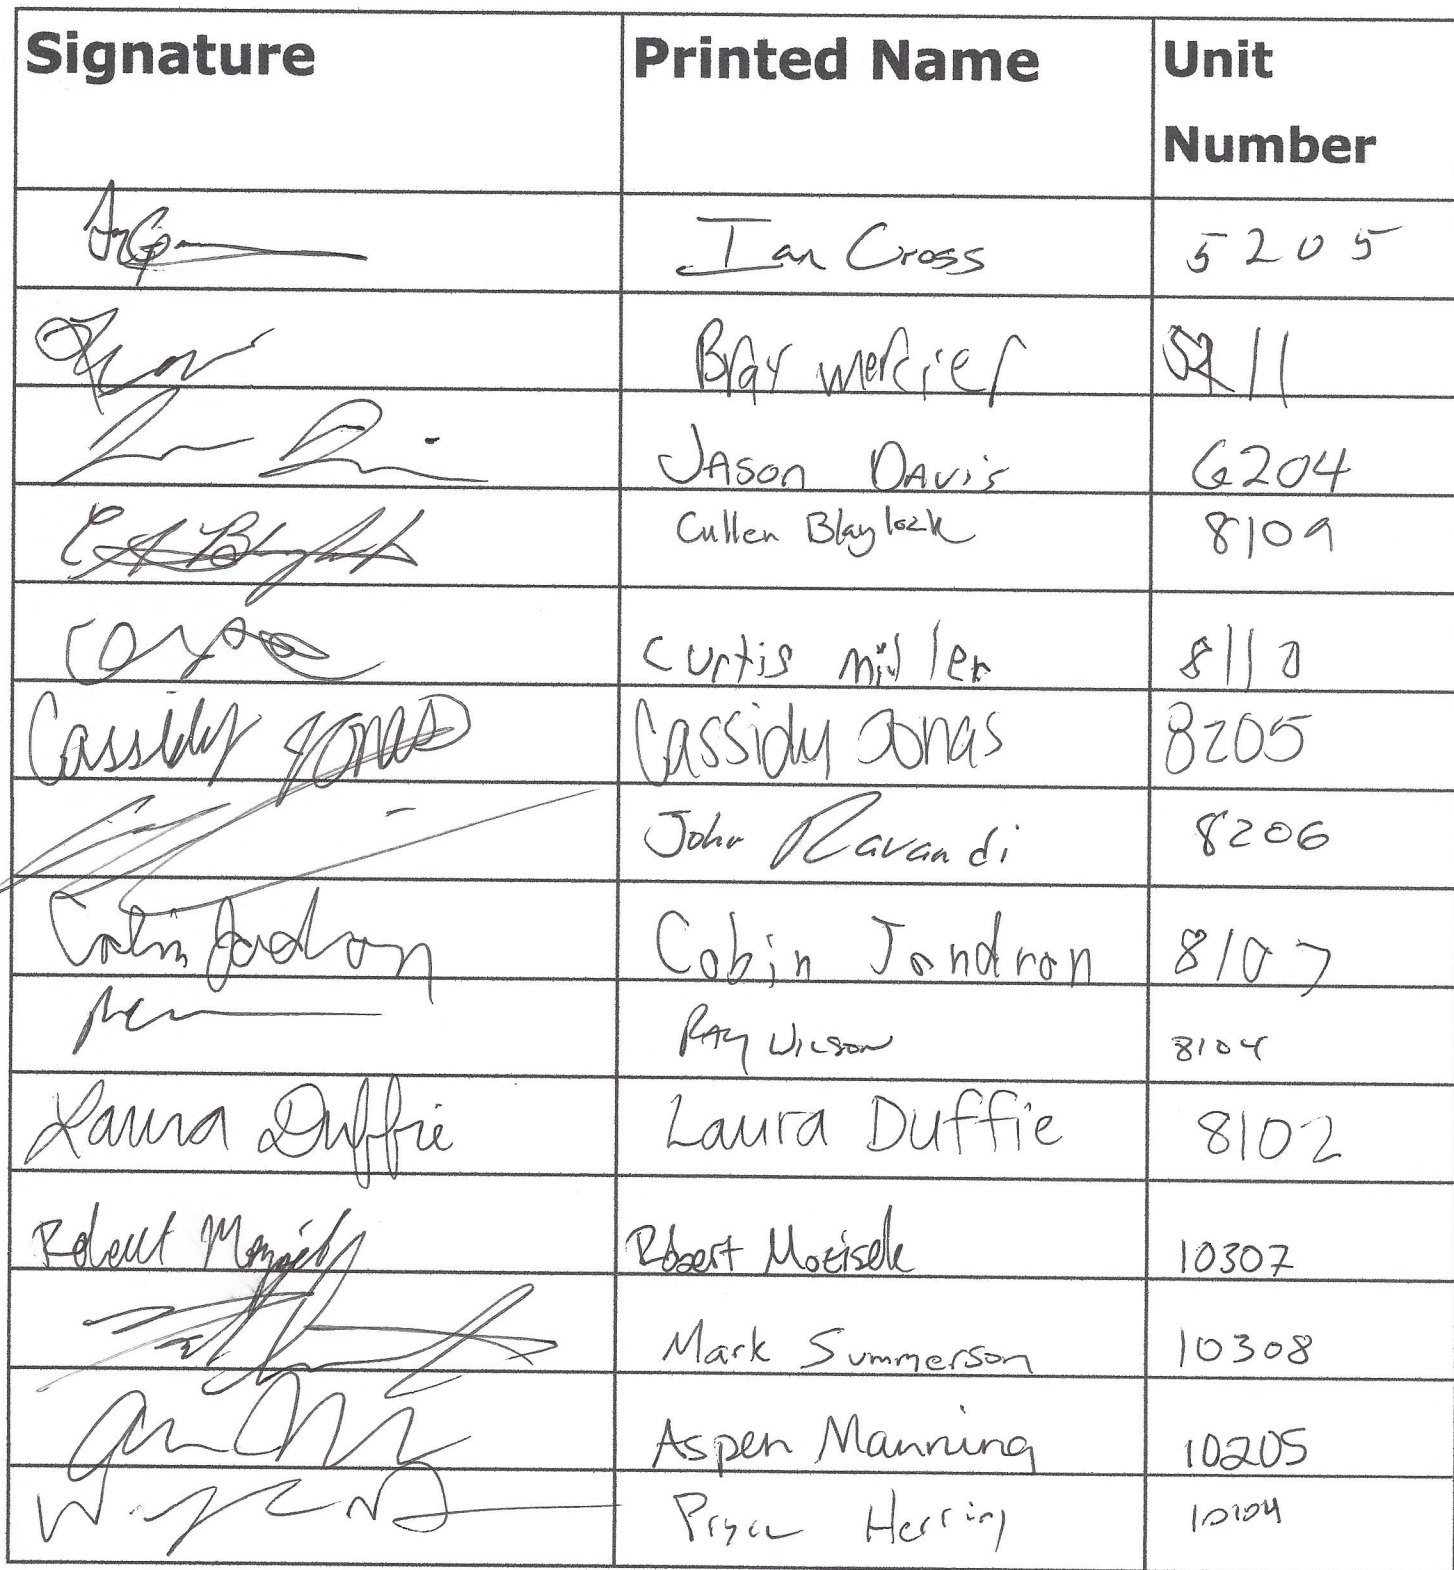 Signature Printed Name Unit Number
Ian Cross 5205
Bray mercier 5211
Jason Davis 6204
Cullen Blaylock 8109
Curtis miller 8110
Cassidy Jonas Cassidy Jonas 8205
John Ravandi 8206
Cobin Jondron 8107
Ray Wilson 8104
Laura Duffie Laura Duffie 8102
Robert Robert 10307
Mark Summerson 10308
Aspen Manning 10205
Herring 10104